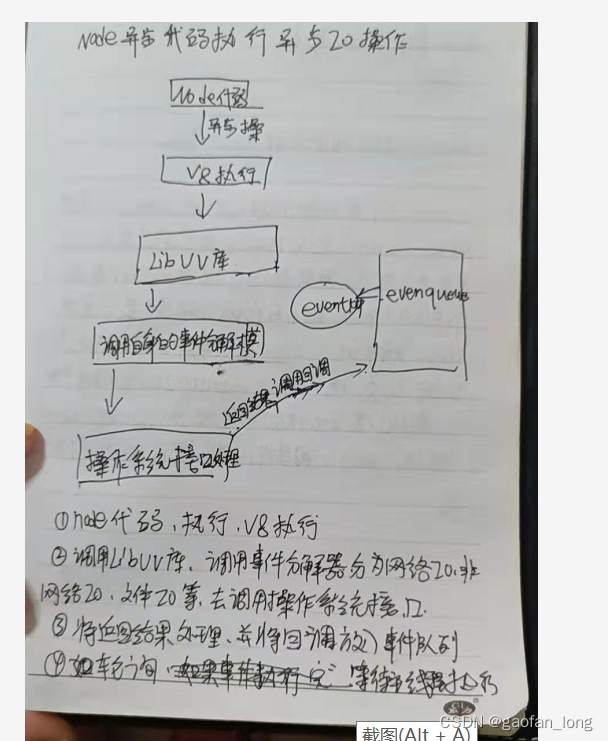 Node异步代码执行异步IO操作
Node代码
异步操
V8执行
LibUV库
evenqueue
调用自身的事件分解模
返回结果调用回调
操作系统接口处理
①node代码、执行、V8执行
②调用LibUV库、调用事件分解器分为网络IO、非
网络IO、文件IO等、去调用操作系统接口。
③将返回结果处理、并将回调放入事件队列
④ 轮询 "如果事件执行完" 等待 线程执行
CSDN @gaofan_long
截图(Alt + A)